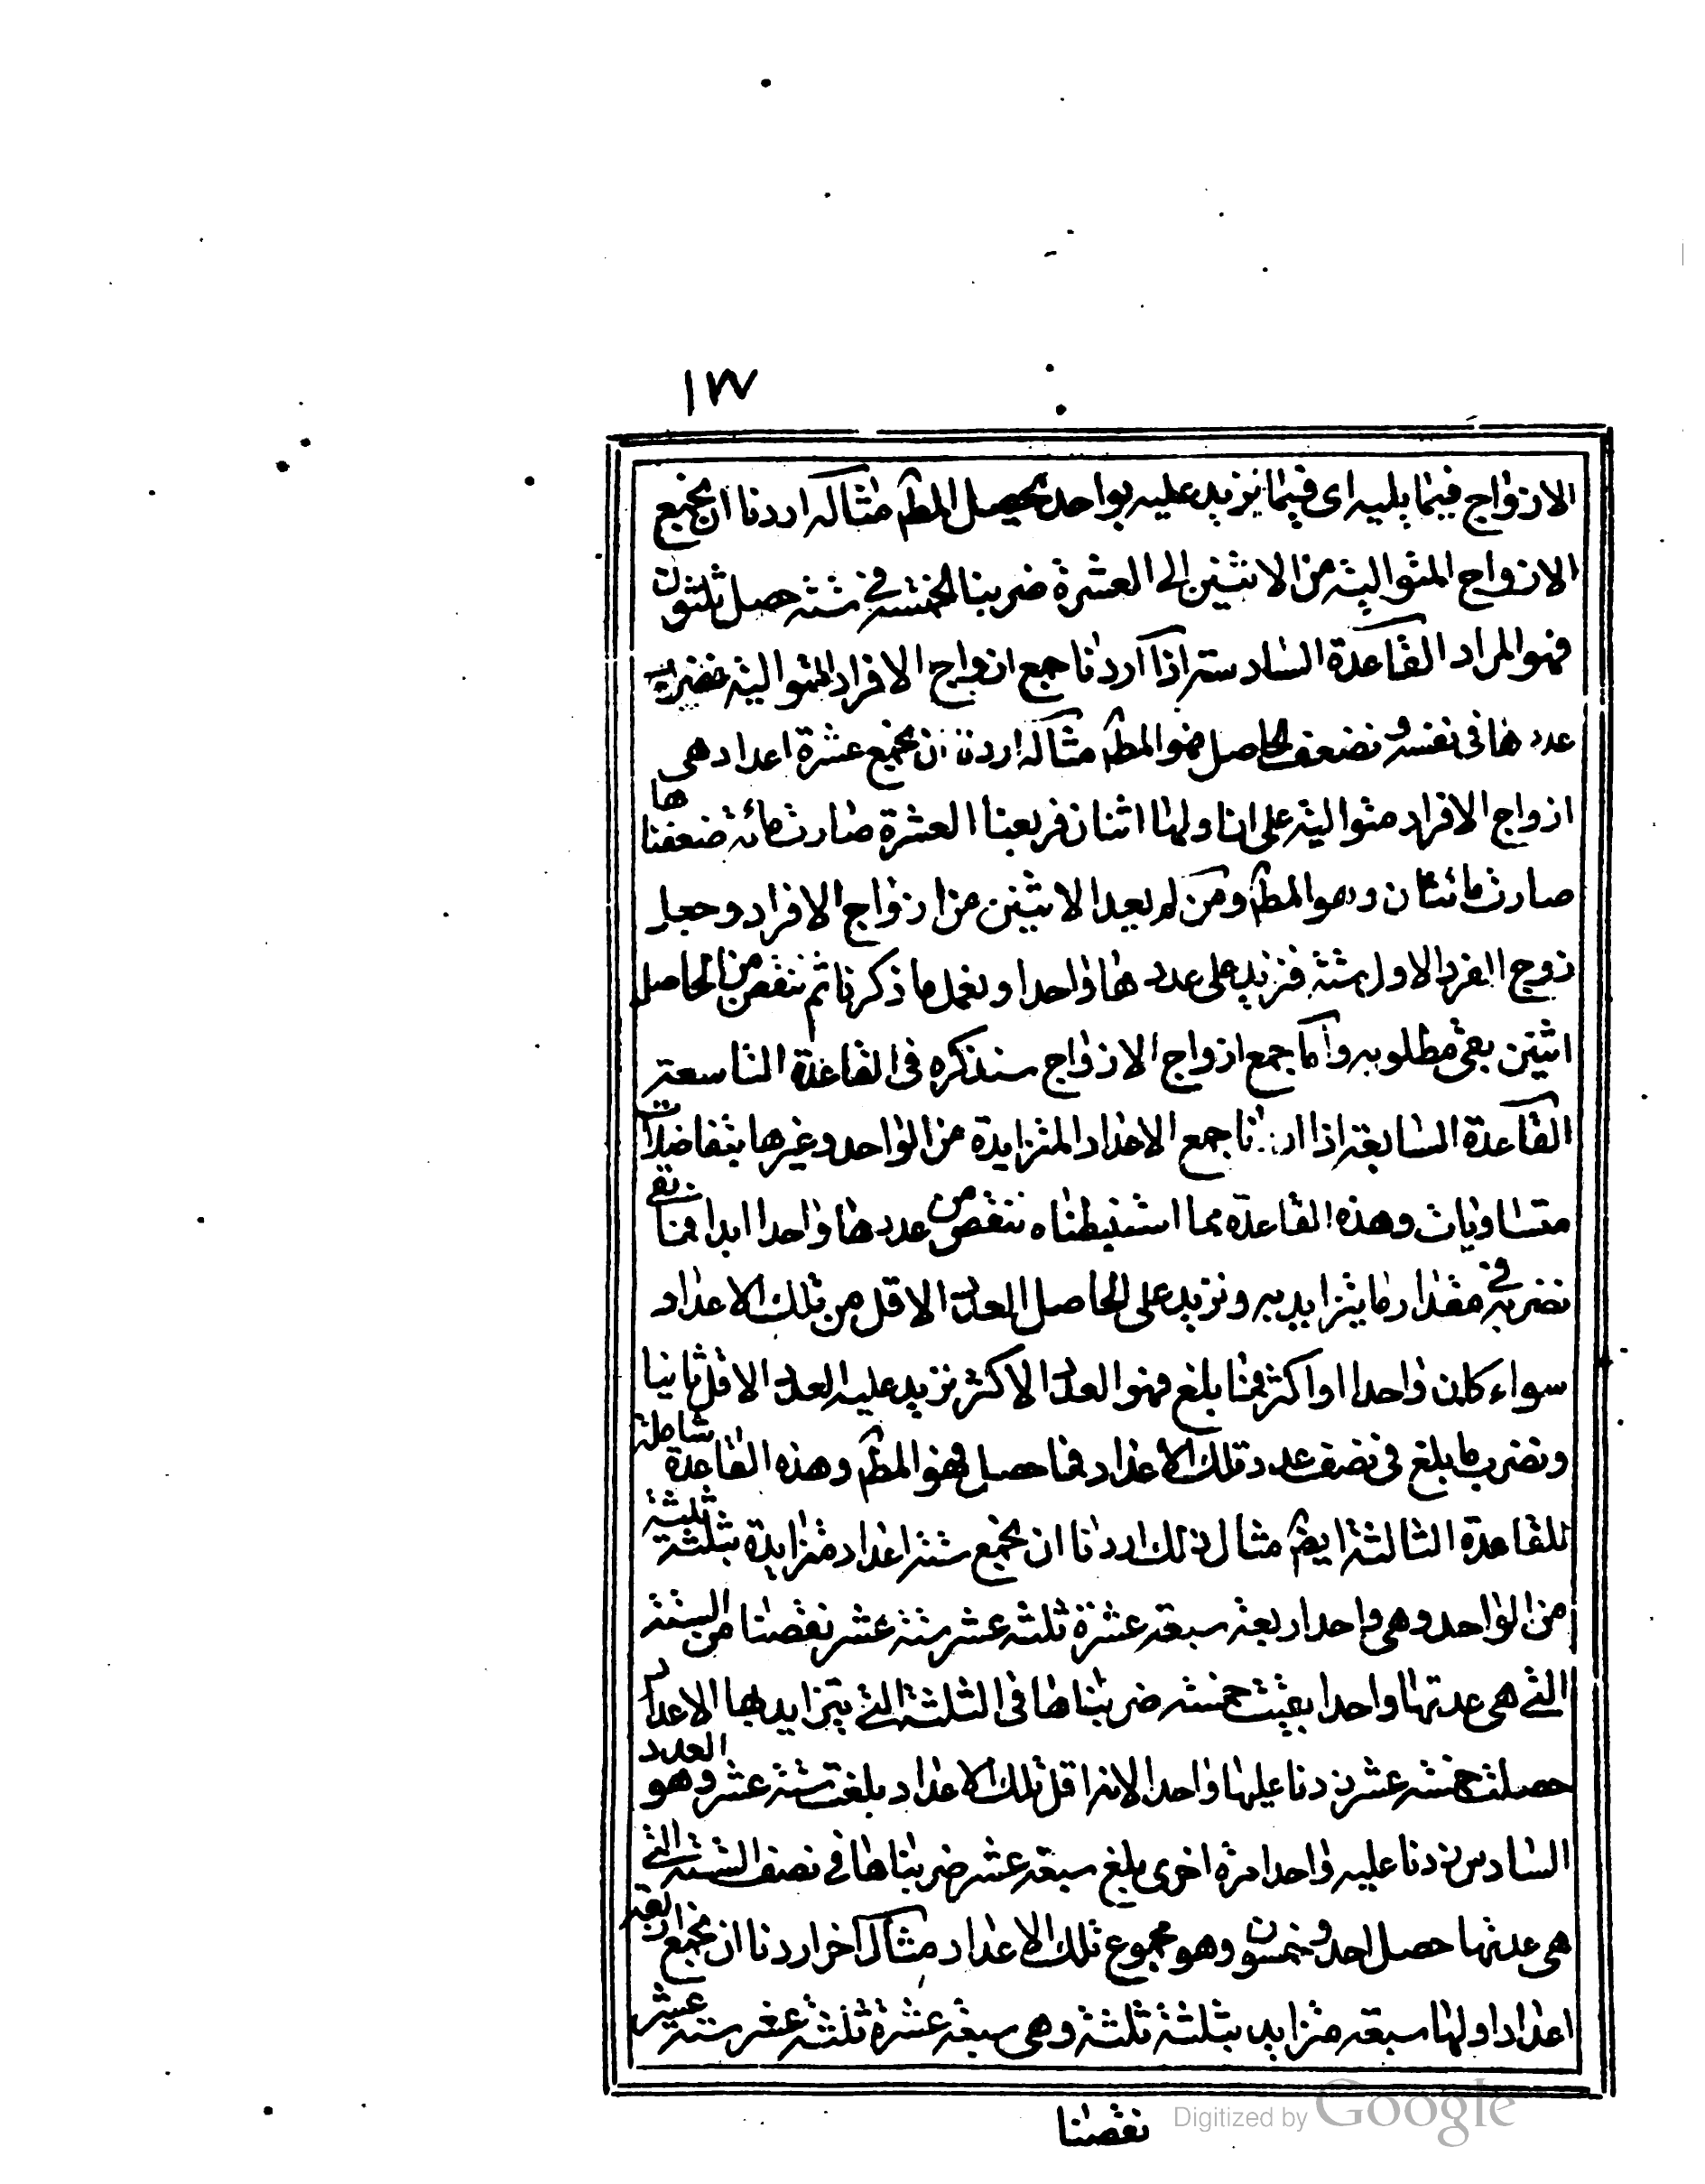 ١٣٧
الازواج فيما يليه اى فيما يزيد عليه بواحد يحصل المط مثاله اردنا ان نجمع
الازواج المتوالية من الاثنين الى العشرة ضربنا الخمسة فى ستة حصل ثلثون
فهو المراد القاعدة السادسة اذا اردنا جمع ازواج الافراد المتوالية نضرب
عددها فى نفسه و نضعف الحاصل فهو المط مثاله اردنا ان نجمع عشرة اعداد هى
ازواج الافراد متوالية على ان اولها اثنان فربعنا العشرة صارت مائة ضعفناها
صارت مائتان وهو المط ومن لم يعد الاثنين من ازواج الافراد وجعل
زوج الفرد الاول ستة فنزيد على عددها واحدا ونعمل ما ذكرنا ثم ننقص من الحاصل
اثنين بقى مطلوبه واما جمع ازواج الازواج سنذكره فى القاعدة التاسعة
القاعدة السابعة اذا اردنا جمع الاعداد المتزايدة من الواحد وغيرها بتفاضلات
متساويات وهذه القاعدة مما استنبطناه ننقص من عددها واحدا ابدا فما بقى
نضربه فى مقدار ما يتزايد به ونزيد على الحاصل العدد الاقل من تلك الاعداد
سواء كان واحدا او اكثر فما بلغ فهو العدد الاكثر نزيد عليه العدد الاقل ثانيا
ونضرب ما بلغ فى نصف عدد تلك الاعداد فما حصل فهو المط وهذه القاعدة شاملة
للقاعدة الثالثة ايضم مثال ذلك اردنا ان نجمع ستة اعداد متزايدة بثلثة ثلثة
من الواحد وهى واحد اربعة سبعة عشرة ثلثة عشر ستة عشر نقصنا من الستة
التى هى عدتها واحدا بقيت خمسة ضربناها فى الثلثة التى يتزايد بها الاعداد
حصلت خمسة عشر زدنا عليها واحدا لانه اقل تلك الاعداد بلغت ستة عشر وهو العدد
السادس زدنا عليه واحدا مرة اخرى بلغ سبعة عشر ضربناها فى نصف الستة التى
هى عدتها حصل احد و خمسون وهو مجموع تلك الاعداد مثال آخر اردنا ان نجمع اربعة
اعداد اولها سبعة متزايد بثلثة ثلثة وهى سبعة عشرة ثلثة عشر ستة عشر
نقصنا
Digitized by Google